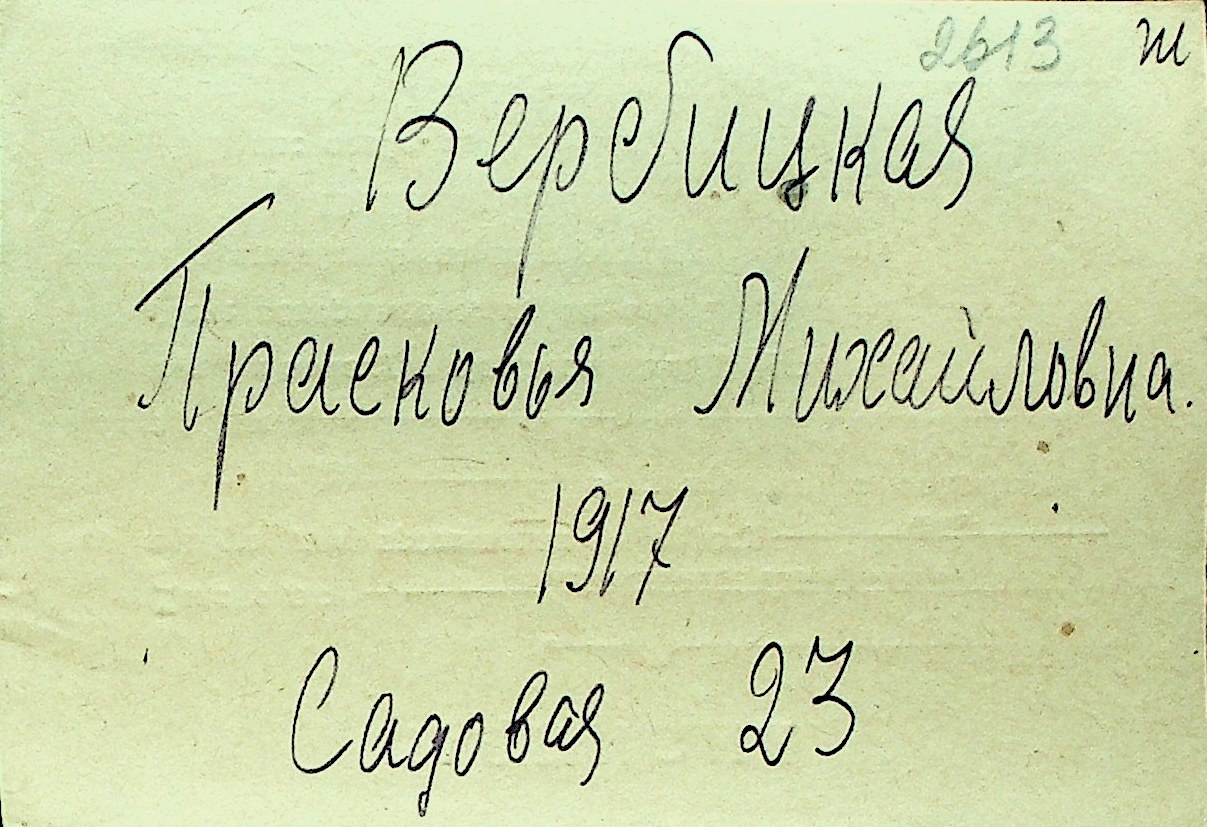 2613 ж
Вербицкая
Прасковья Михайловна.
1917
Садовая 23